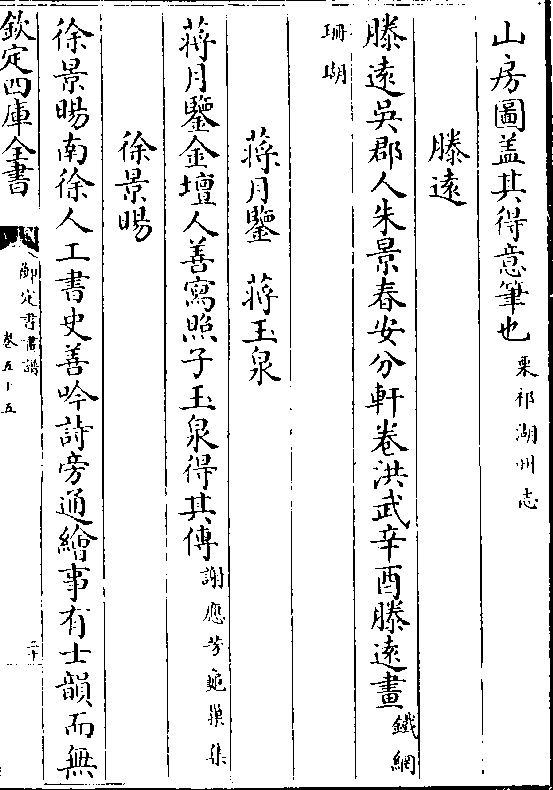 山房圖盖其得意筆也栗祁湖州志
滕遠
滕遠吳郡人朱景春安分軒卷洪武辛酉滕遠畫鐵網
珊瑚
蔣月鑒　蔣玉泉
蔣月鑒金壇人善寫照子玉泉得其傳謝應芳龜巢集
徐景暘
徐景暘南徐人工書史善吟詩旁通繪事有士韻而無
欽定四庫全書
御定書畫譜
卷五十五
二十